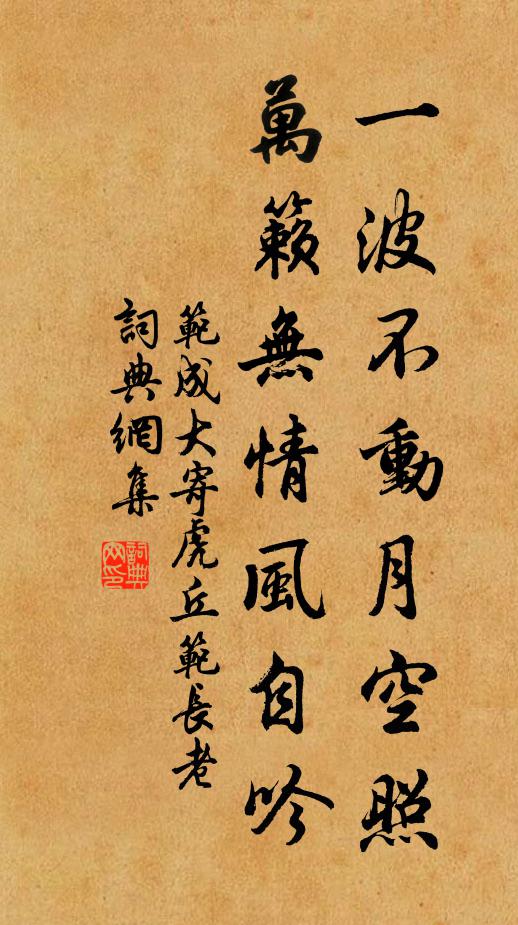 一波不動月空照
萬籟無情風自吟
範成大寄虎丘範長老
詞典網集
詞典網印